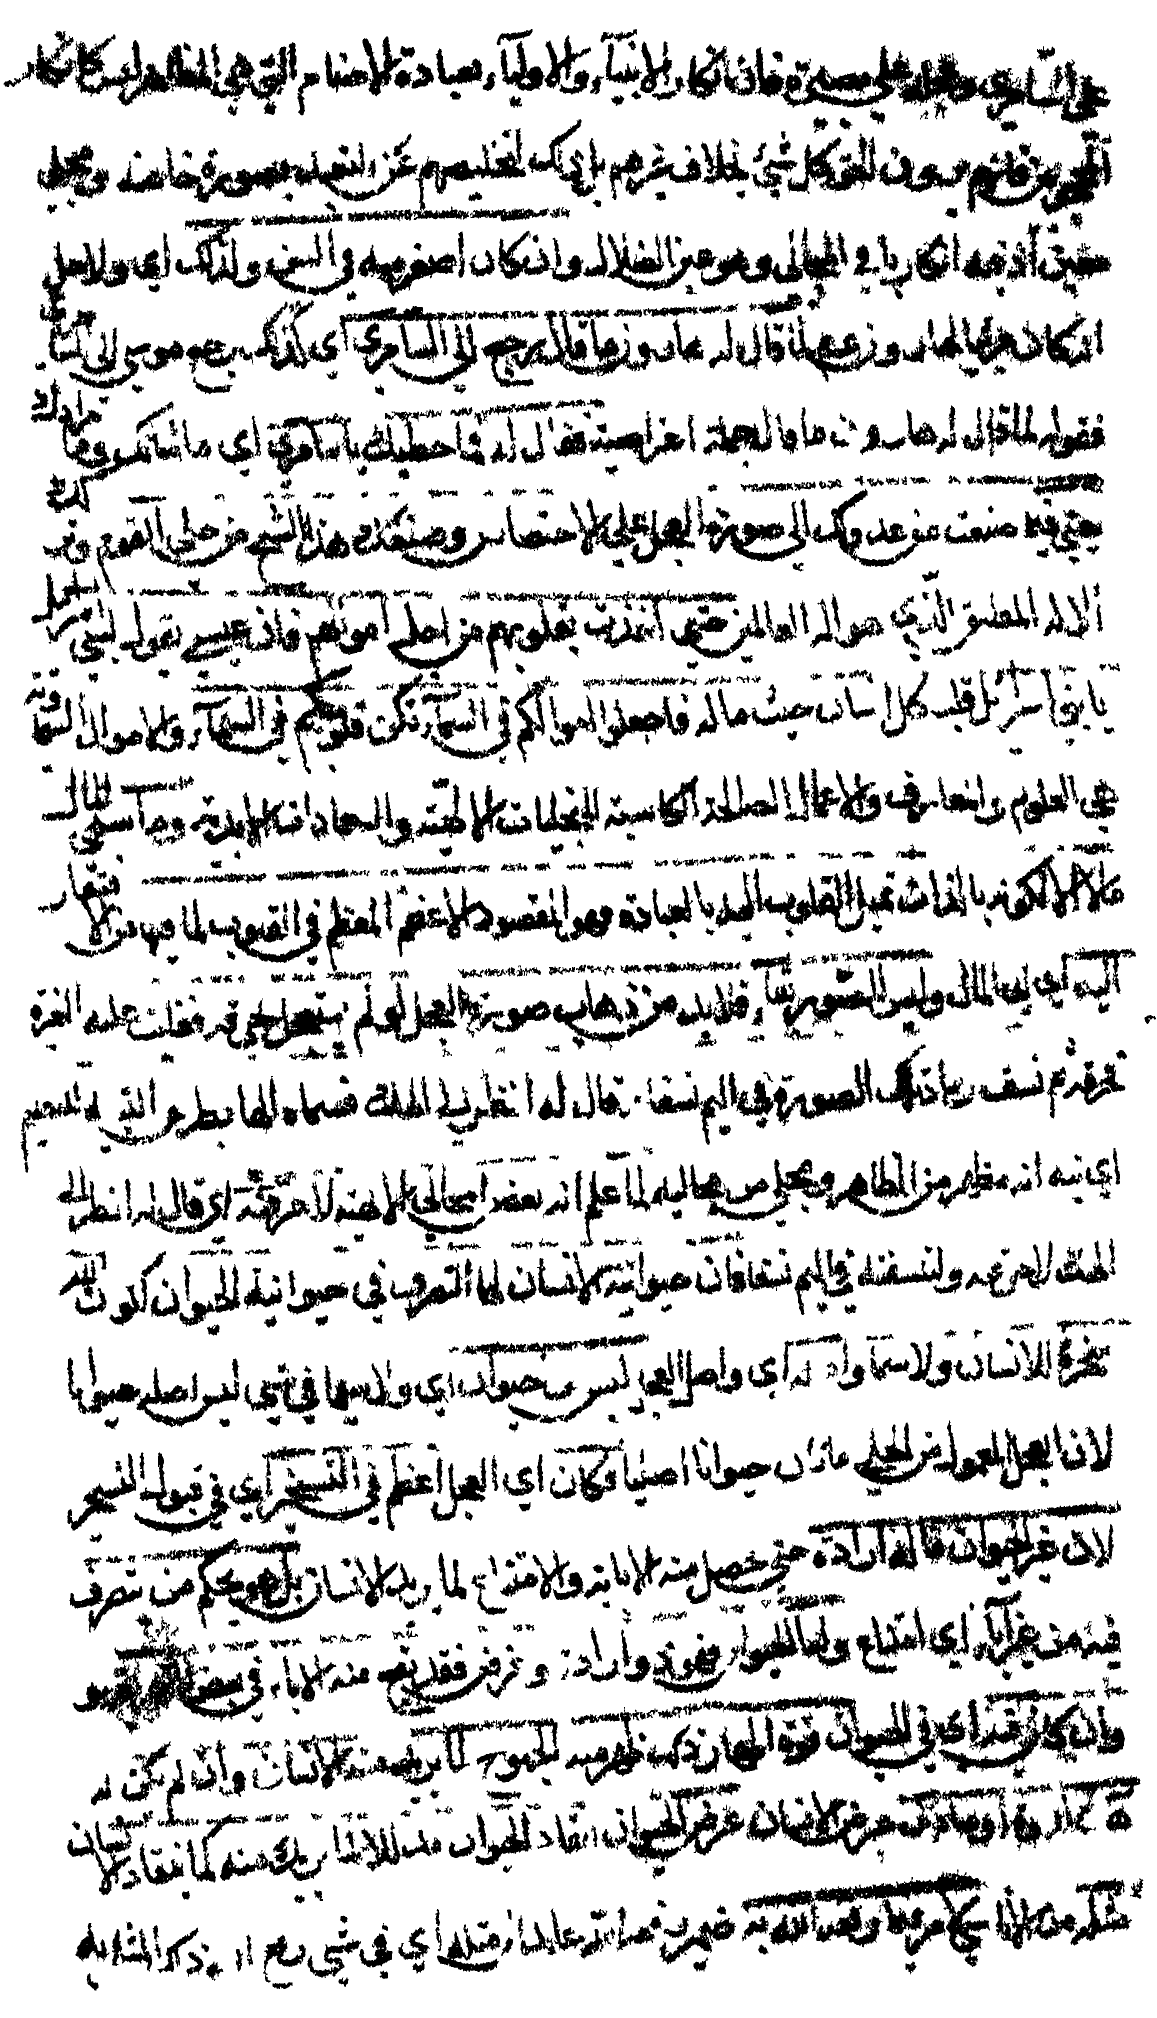 على السامري وعجله على بصيرة فان انكار الانبياء والاولياء لعبادة الاصنام التي هي المظاهر ليس كانكار
المحجوبين فانهم يرون الحق كل شيء بخلاف غيرهم بل ذلك لتخليصهم عن التقيد بصورة خاصة ومجلى
معين اذ فيه انكار باقي المجالي وهو عين الضلال وان كان اصغر منه في السن ولذلك اي ولاجل
ان كان هرون لما قال له هارون ما قال يرجع الى السامري اي كذلك رجع موسى الى السا
فقوله لما قال له هارون ما قال جملة اعتراضية فقال له فما خطبك يا سامري اي ما شانك وما مرادك
يعني فيما صنعت من عدولك الى صورة العجل على الاختصاص وصنعك هذا الشبح من حلي القوم
الاله المطلق الذي هو اله العالمين حتى اخذت بقلوبهم من اجل اموالهم فان عيسى يقول لبني اسرائيل
يا بني اسرائيل قلب كل انسان حيث ماله فاجعلوا اموالكم في السماء تكن قلوبكم في السماء والاموال السماوية
هي العلوم والمعارف والاعمال الصالحة الكاسبة للتجليات الالهية والسعادات الابدية وما سمي المال
مالا الا لكونه بالذات تميل القلوب اليه بالعبادة فهو المقصود الاعظم المعظم في القلوب لما فيها من الافتقار
اليه اي الى المال وليس للصور بقاء فلا بد من ذهاب صورة العجل لو لم يستعجل موسى بحرقه فغلبت عليه الغيرة
فحرقه ثم نسف رماد تلك الصورة في اليم نسفا وقال له انظر الى الهك فسماه الها بطريق التنبيه للتعليم
اي نبه انه مظهر من المظاهر ومجلى من مجاليه لما علم انه بعض المجالي الالهية لاحرقنه اي قال له انظر الى
الهك لاحرقنه ولننسفنه في اليم نسفا فان حيوانية الانسان لها التصرف في حيوانية الحيوان لكون الله
سخرها للانسان ولا سيما واصله اي واصل العجل ليس من حيوان اي ولا سيما في شيء ليس اصله حيوانا
لان العجل المعمول من الحلي ما كان حيوانا اصليا فكان اي العجل اعظم في التسخير اي في قبول التسخير
لان غير الحيوان ما له ارادة حتى يحصل منه الاباء والامتناع لما يريد الانسان بل هو بحكم من يتصرف
فيه من غير اباء اي امتناع واما الحيوان فهو ذو ارادة وغرض فقد يقع منه الاباء في بعض التصريف
وان كان فيه اي في الحيوان قوة اظهار ذلك ظهر منه الجموح لما يريده منه الانسان وان لم يكن له
هذه القوة او صادف غرض الانسان غرض الحيوان انقاد الحيوان مذللا لما يريده منه كما ينقاد الانسان
مثله من الاناسي لامر فيما رفعه الله به ضمير به عائد الى مثله اي في شيء رفع الله ذلك المثل به